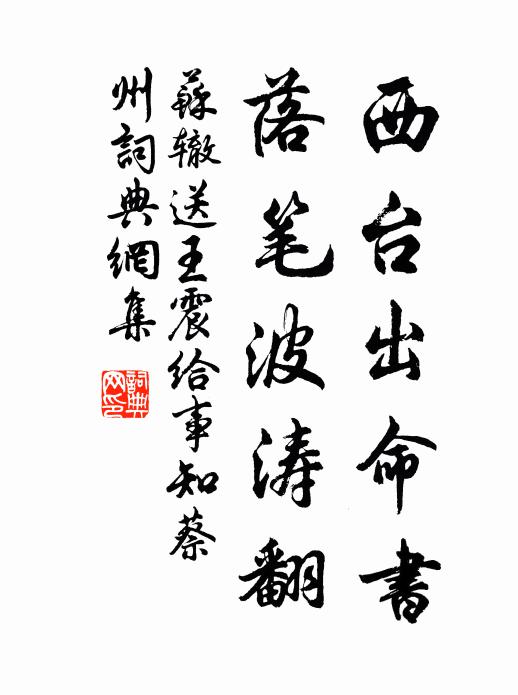 西台出命書
落笔波涛翻
蘇辙送王震给事知蔡
州詞典網集
詞典网印